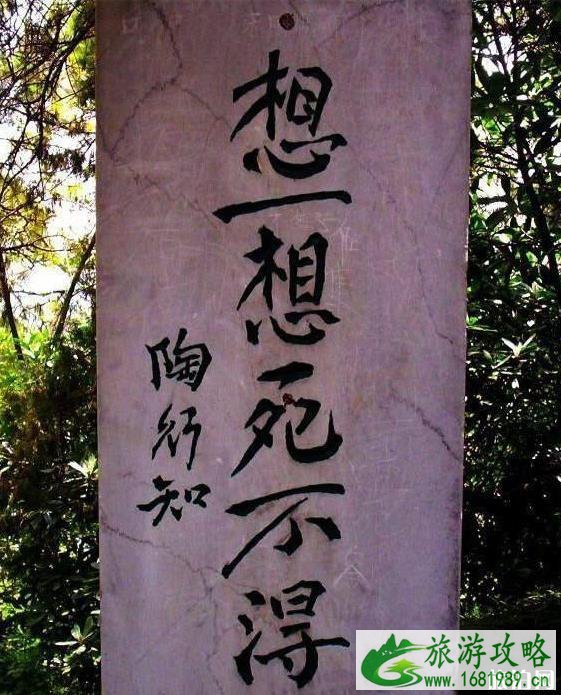 想一想死不得
陶行知
旅游攻略
www.1681989.cn